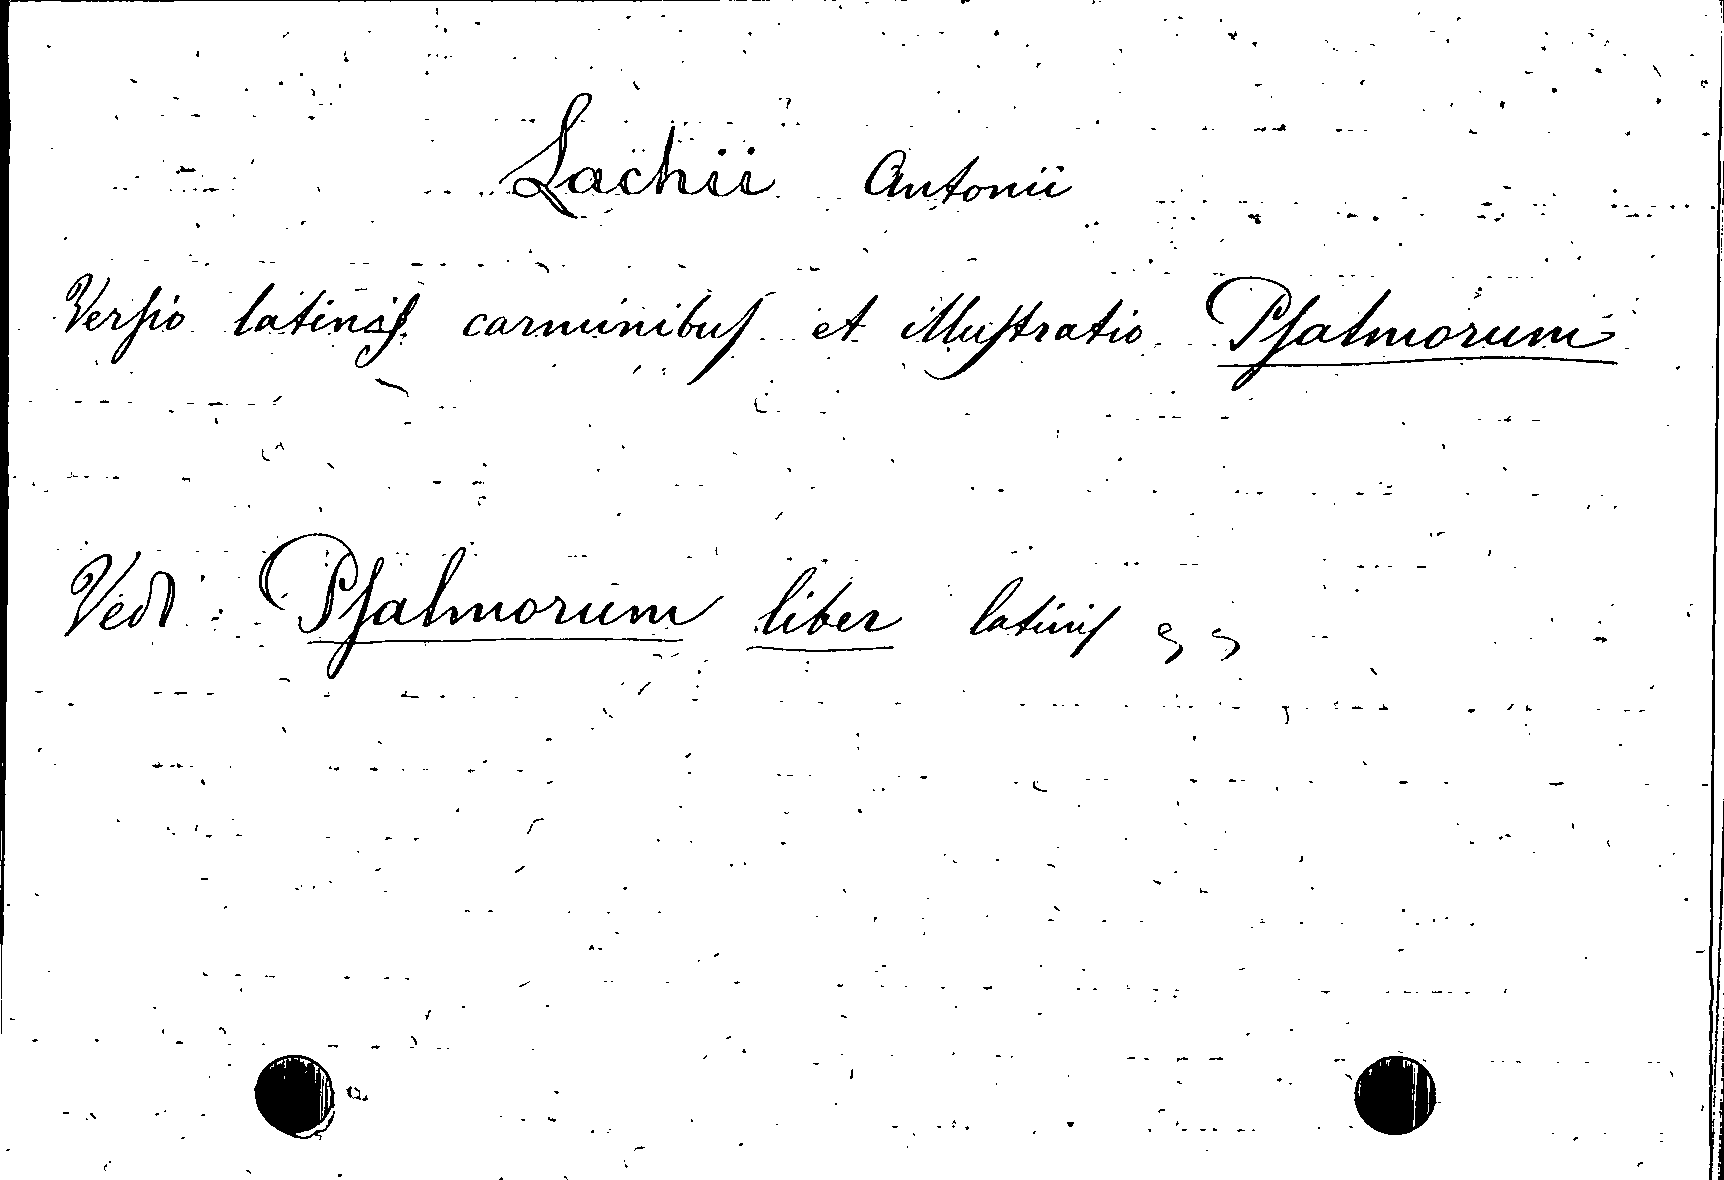 Lachii Antonii
Versio latinis carminibus et illustratio Psalmorum
Vedi: Psalmorum liber latinis